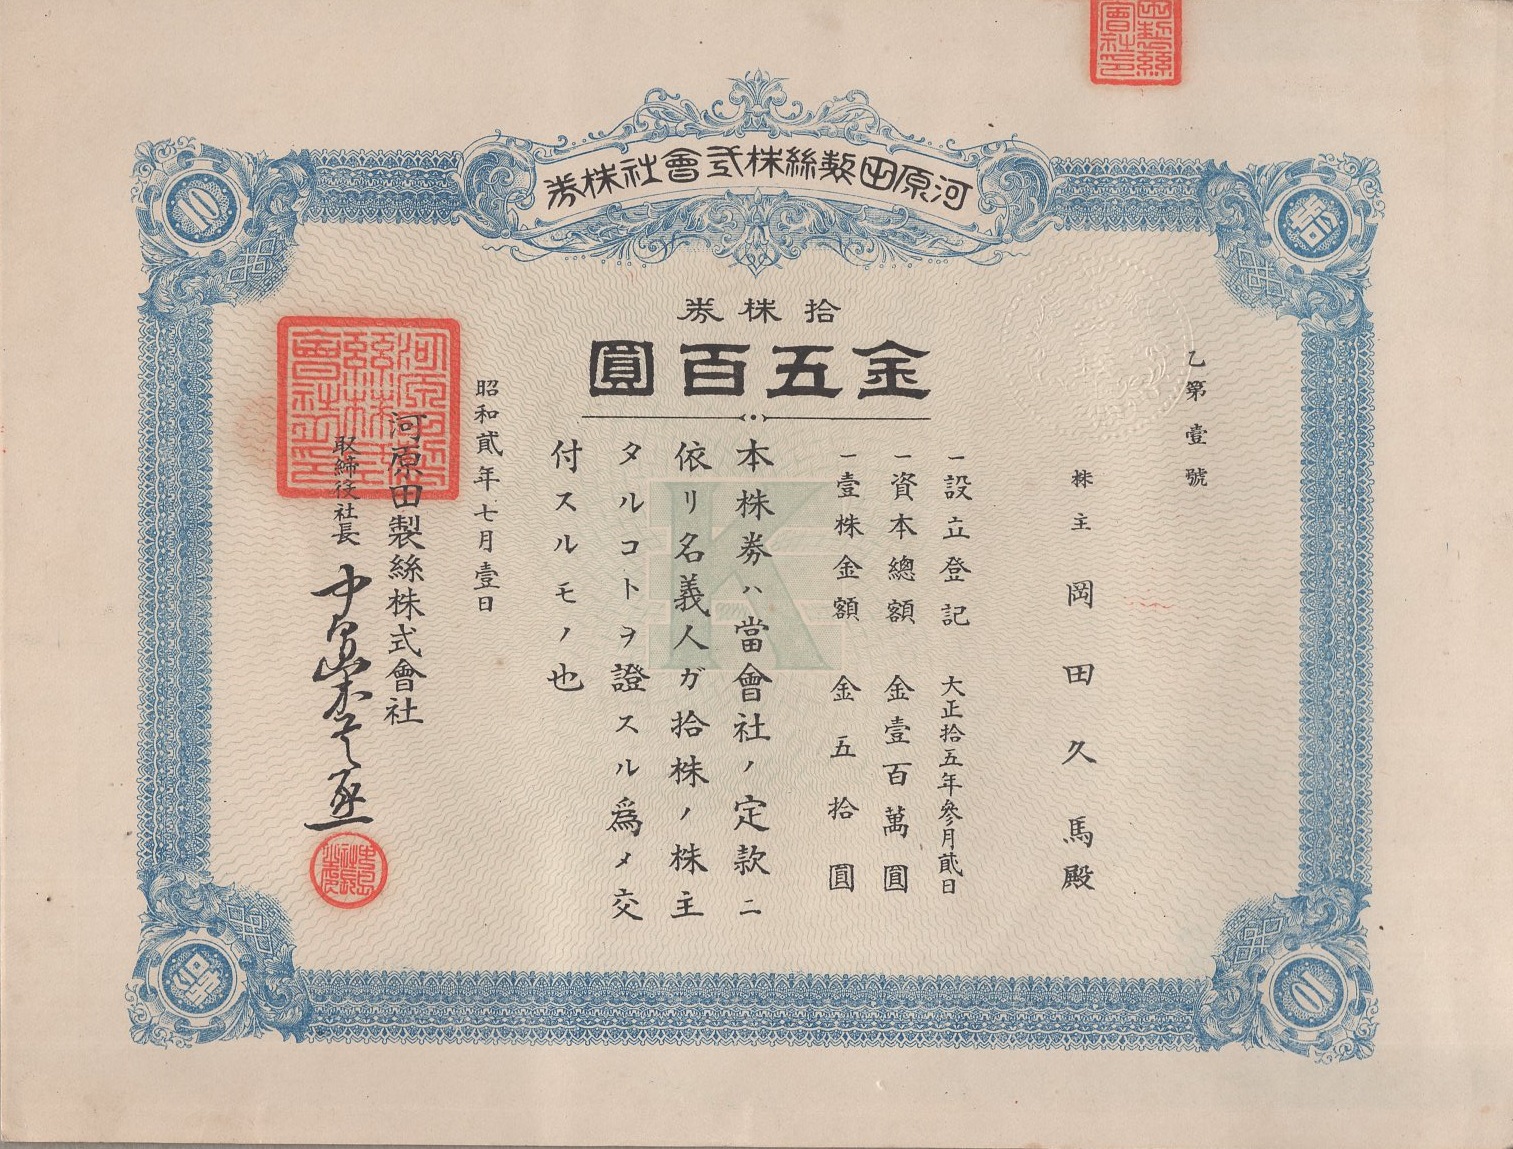 河原田製絲株式會社株券
拾株券
金五百圓
乙第壹號
株主 岡田久馬殿
一設立登記 大正拾五年參月貳日
一資本總額 金壹百萬圓
一壹株金額 金五拾圓
本株券ハ當會社ノ定款ニ
依リ名義人ガ拾株ノ株主
タルコトヲ證スル爲メ交
付スルモノ也
昭和貳年七月壹日
河原田製絲株式會社
取締役社長
10
拾
拾
10
K